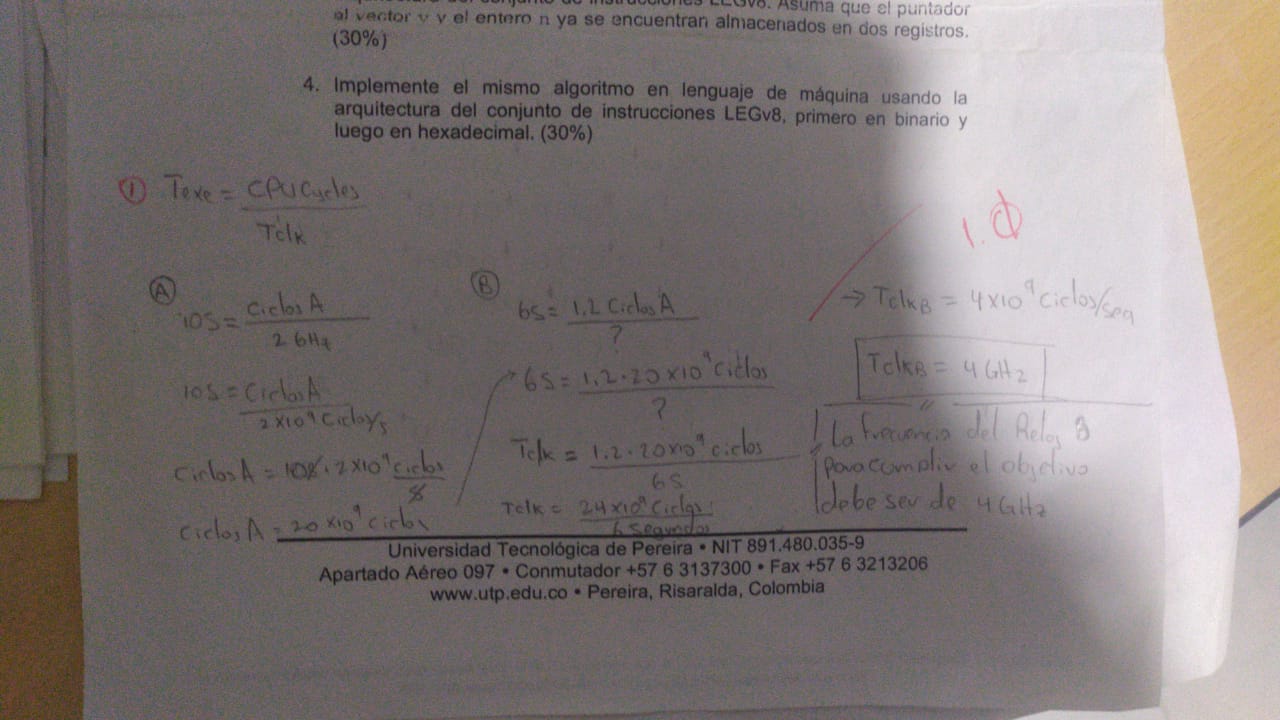 Asuma que el puntador
al vector v y el entero n ya se encuentran almacenados en dos registros.
(30%)
4. Implemente el mismo algoritmo en lenguaje de máquina usando la
arquitectura del conjunto de instrucciones LEGv8, primero en binario y
luego en hexadecimal. (30%)
① Texe = CPU Cycles
Tclk
1.0
Ⓐ
10S = Ciclos A
2 GHz
10S = Ciclos A
2x10⁹ Ciclo/s
Ciclos A = 10s . 2x10⁹ ciclos
s
Ciclos A = 20x10⁹ ciclos
Ⓑ
6S = 1.2 Ciclos A
?
6S = 1.2 · 20x10⁹ ciclos
?
Tclk = 1.2 · 20x10⁹ ciclos
6S
Tclk = 24x10⁹ Ciclos
6 Segundos
→ TclkB = 4x10⁹ Ciclos/seg
TclkB = 4 GHz
La frecuencia del Reloj B
para cumplir el objetivo
debe ser de 4 GHz
Universidad Tecnológica de Pereira • NIT 891.480.035-9
Apartado Aéreo 097 • Conmutador +57 6 3137300 • Fax +57 6 3213206
www.utp.edu.co • Pereira, Risaralda, Colombia